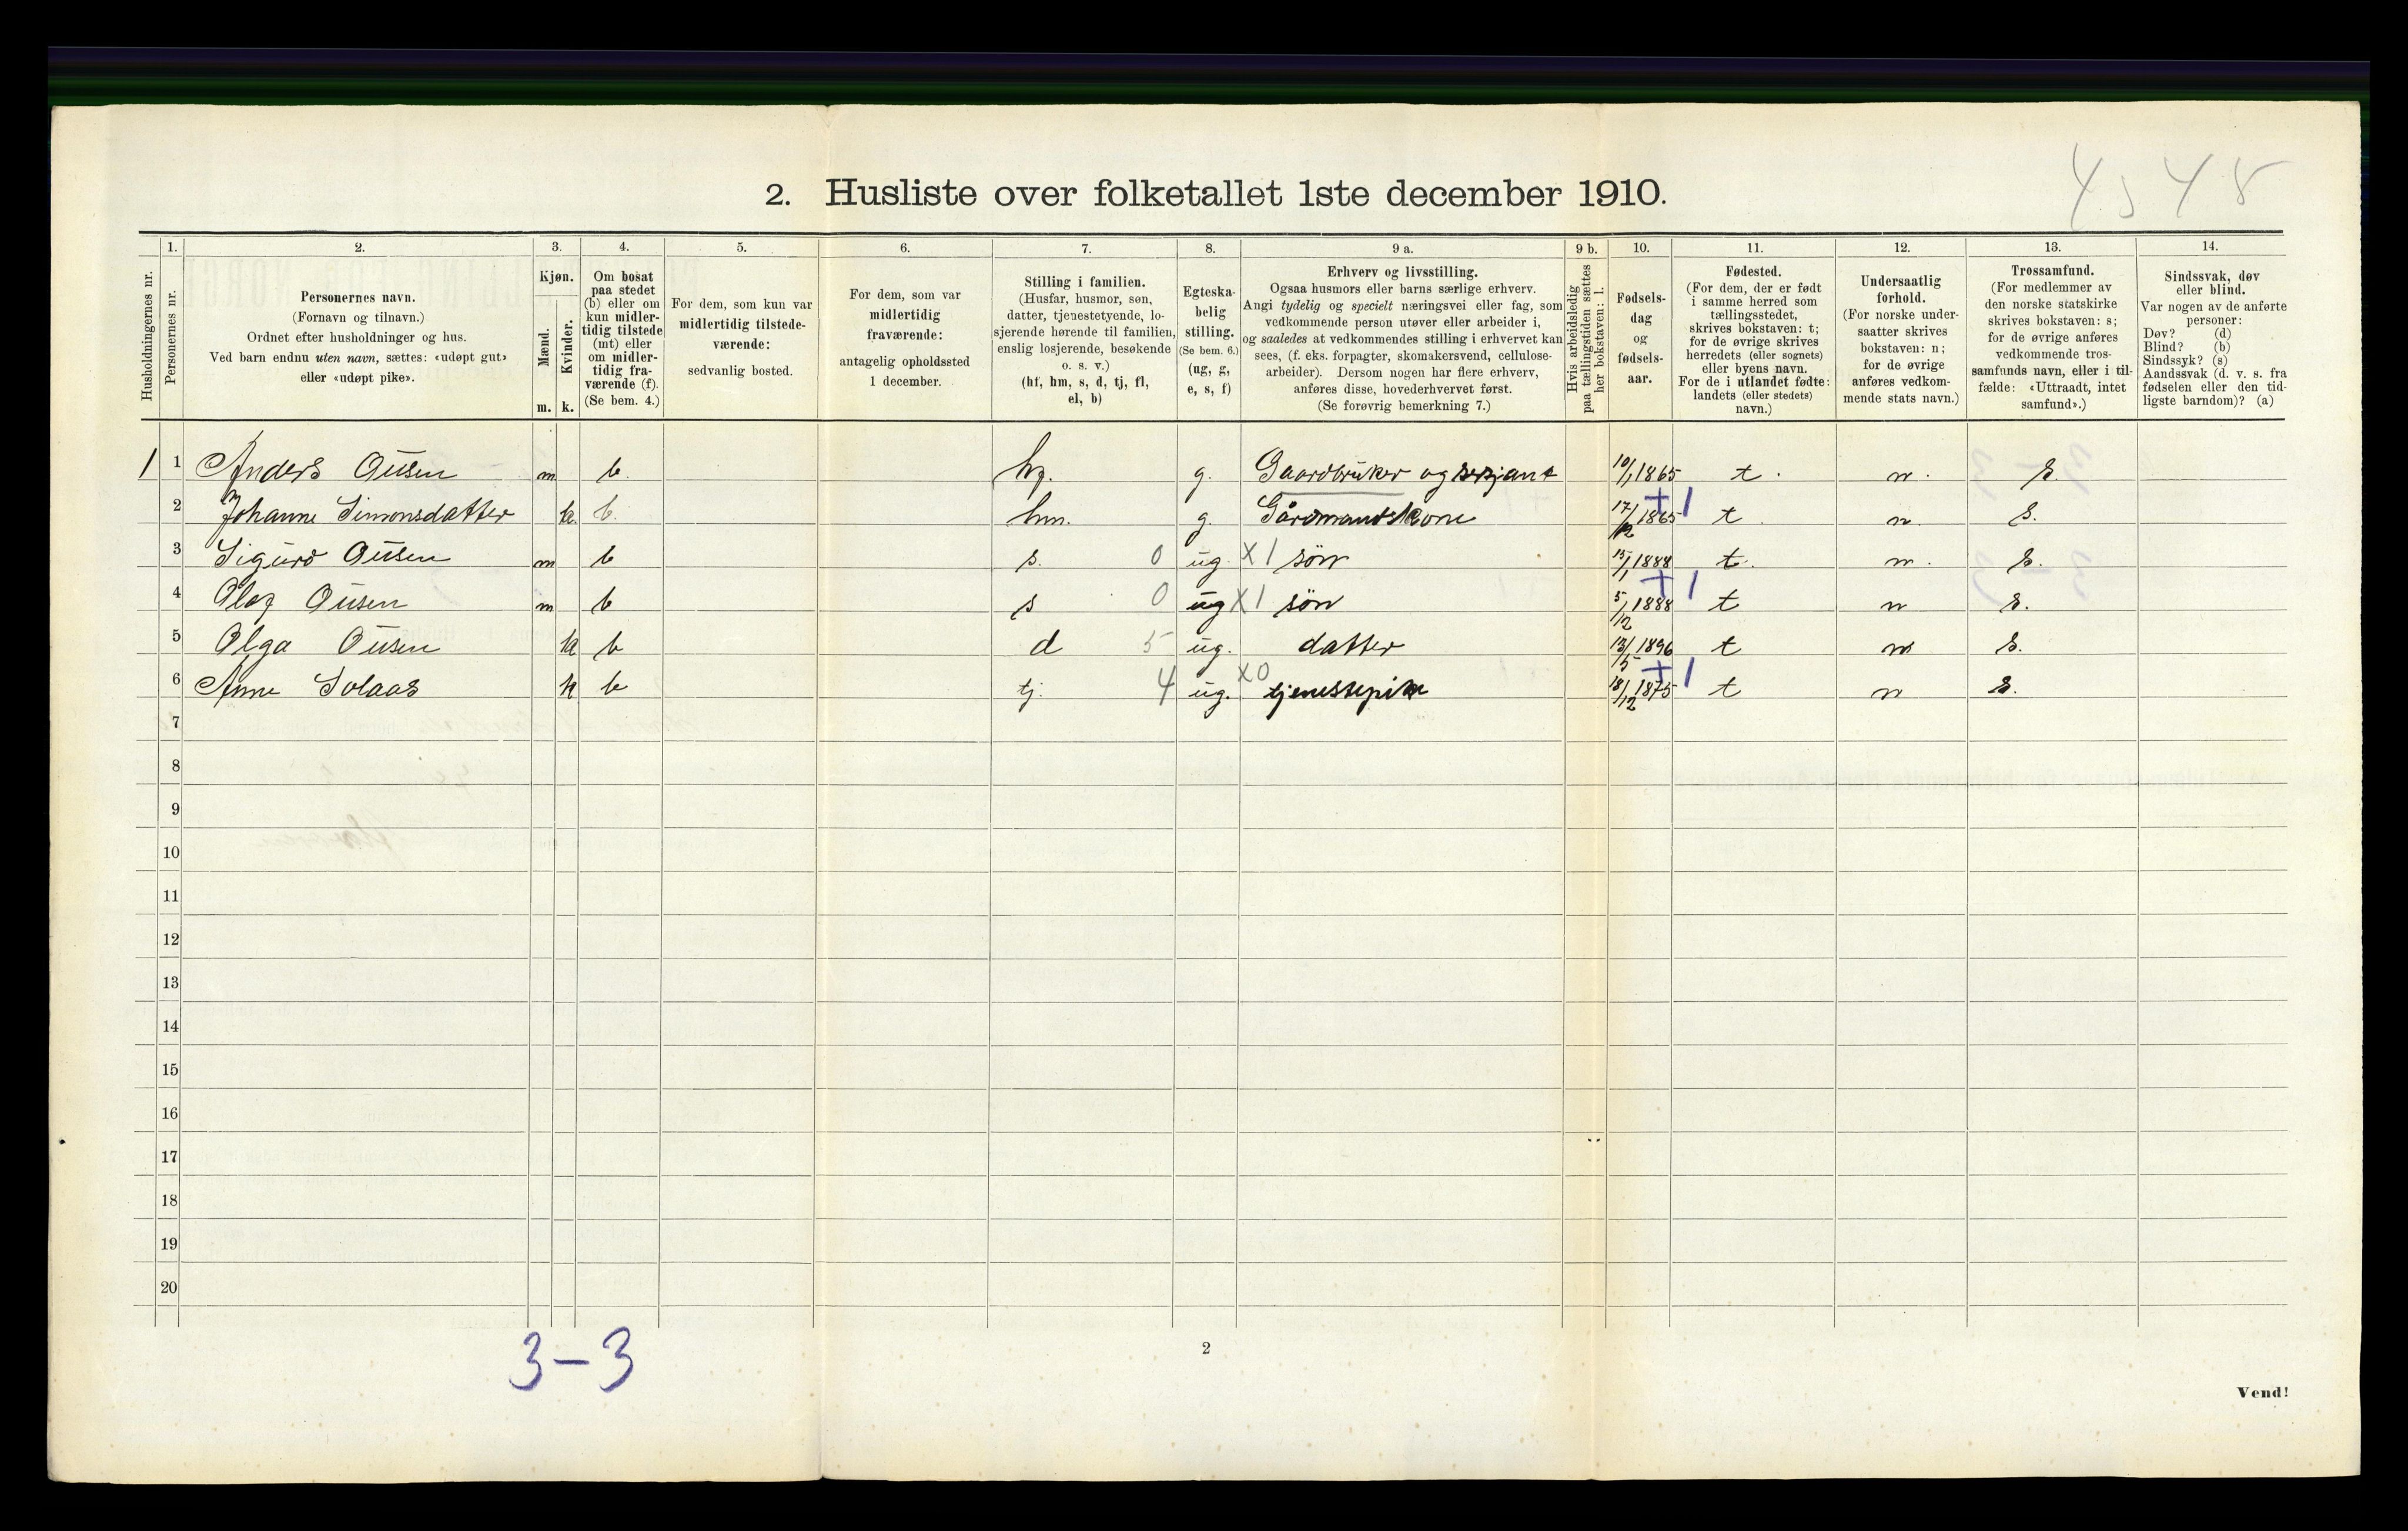 4548
2. Husliste over folketallet 1ste december 1910.
Husholdningernes nr.
1. Personernes nr.
2. Personernes navn. (Fornavn og tilnavn.) Ordnet efter husholdninger og hus. Ved barn endnu uten navn, sættes: «udøpt gut» eller «udøpt pike».
3. Kjøn. Mænd. m. Kvinder. k.
4. Om bosat paa stedet (b) eller om kun midlertidig tilstede (mt) eller om midlertidig fraværende (f). (Se bem. 4.)
5. For dem, som kun var midlertidig tilstedeværende: sedvanlig bosted.
6. For dem, som var midlertidig fraværende: antagelig opholdssted 1 december.
7. Stilling i familien. (Husfar, husmor, søn, datter, tjenestetyende, losjerende hørende til familien, enslig losjerende, besøkende o. s. v.) (hf, hm, s, d, tj, fl, el, b)
8. Egteskabelig stilling. (Se bem. 6.) (ug, g, e, s, f)
9 a. Erhverv og livsstilling. Ogsaa husmors eller barns særlige erhverv. Angi tydelig og specielt næringsvei eller fag, som vedkommende person utøver eller arbeider i, og saaledes at vedkommendes stilling i erhvervet kan sees, (f. eks. forpagter, skomakersvend, cellulosearbeider). Dersom nogen har flere erhverv, anføres disse, hovederhvervet først. (Se forøvrig bemerkning 7.)
9 b. Hvis arbeidsledig paa tællingstiden sættes her bokstaven: l.
10. Fødselsdag og fødselsaar.
11. Fødested. (For dem, der er født i samme herred som tællingsstedet, skrives bokstaven: t; for de øvrige skrives herredets (eller sognets) eller byens navn. For de i utlandet fødte: landets (eller stedets) navn.)
12. Undersaatlig forhold. (For norske undersaatter skrives bokstaven: n; for de øvrige anføres vedkommende stats navn.)
13. Trossamfund. (For medlemmer av den norske statskirke skrives bokstaven: s; for de øvrige anføres vedkommende trossamfunds navn, eller i tilfælde: «Uttraadt, intet samfund».)
14. Sindssvak, døv eller blind. Var nogen av de anførte personer: Døv? (d) Blind? (b) Sindssyk? (s) Aandssvak (d. v. s. fra fødselen eller den tidligste barndom)? (a)
1 1 Anders Olisen m b. hf. g. Gaardbruker og sersjant 10/1 1865 t. n. S.
2 Johanne Simonsdatter k b. hm. g. Gårdmandskone 17/12 1865 + 1 t. n. S.
3 Sigurd Olisen m b s. 0 ug. X 1 søn 15/1 1888 t. n. S.
4 Olaf Olisen m b s 0 ug X 1 søn 5/12 1888 + 1 t n S.
5 Olga Olisen k b d 5 ug. datter 13/5 1896 t n S.
6 Anne Solaas k b tj. 4 ug. X0 tjenestepike 18/12 1875 + 1 t n S.
7
8
9
10
11
12
13
14
15
16
17
18
19
20
3-3
2
Vend!